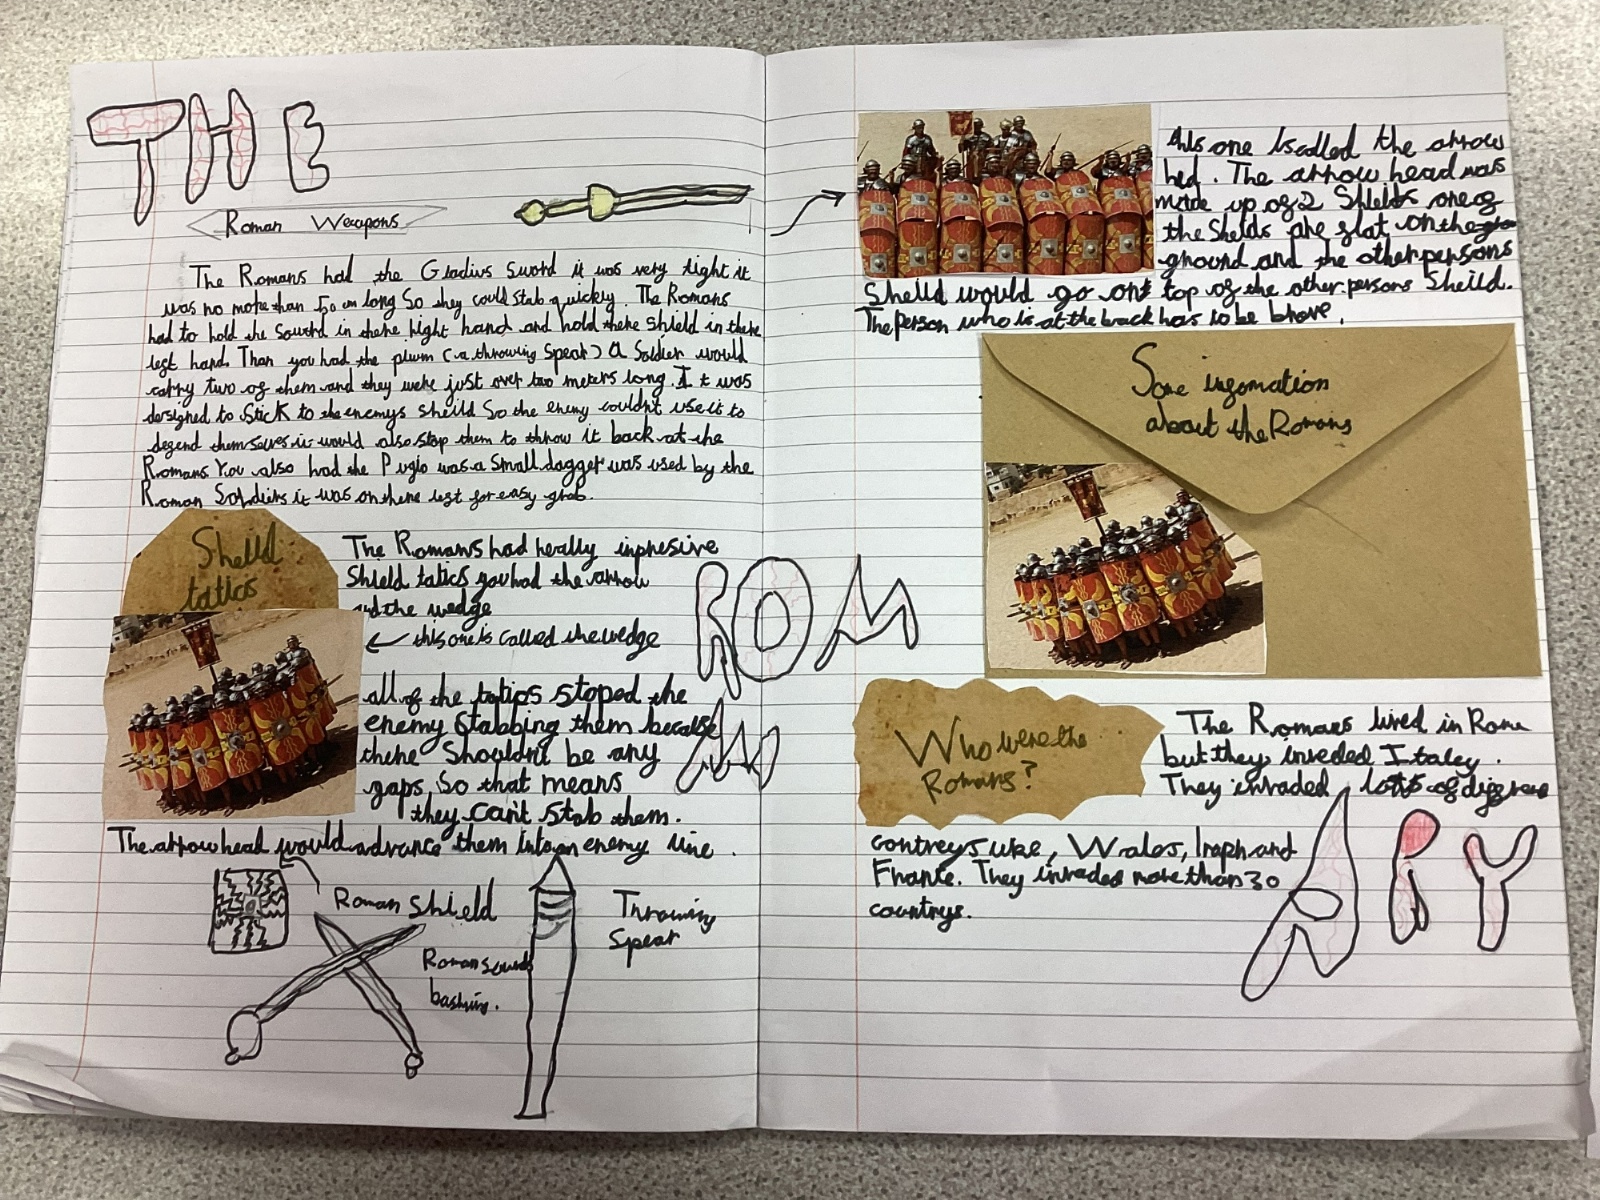 THE
Roman Weapons
The Romans had the Gladius sword it was very light it
was no more than 50 cm long So they could stab quickly. The Romans
had to hold the sword in there right hand and hold there shield in there
left hand. Than you had the plum (a throwing Spear) A Soldier would
carry two of them and they were just over two meters long. It was
designed to Stick to the enemys sheild So the enemy couldn't use it to
defend themselves it would also stop them to throw it back at the
Romans. You also had the Pugio was a Small dagger was used by the
Roman Soldiers it was on there left for easy grab.
Sheild
tatics
The Romans had really inpresive
Shield tatics you had the arrow
and the wedge
this one is called the wedge
all of the tatics stoped the
enemy stabbing them because
there Shouldn't be any
gaps. So that means
they can't stab them.
The arrow head would advance them into an enemy line.
Roman Shield
Roman swords
bashing.
Throwing
Spear
ROM
AN
this one is called the arrow
hed. The arrow head was
made up of 2 Shields one of
the Shelds are flat on the
ground and the other persons
Sheild would go ont top of the other persons Sheild.
The person who is at the back has to be brave.
Some infomation
about the Romans
Who were the
Romans?
The Romans lived in Rome
but they inveded Italey.
They invaded lots of
contreys like, Wales, and
France. They invaded more than 30
countrys.
ARY